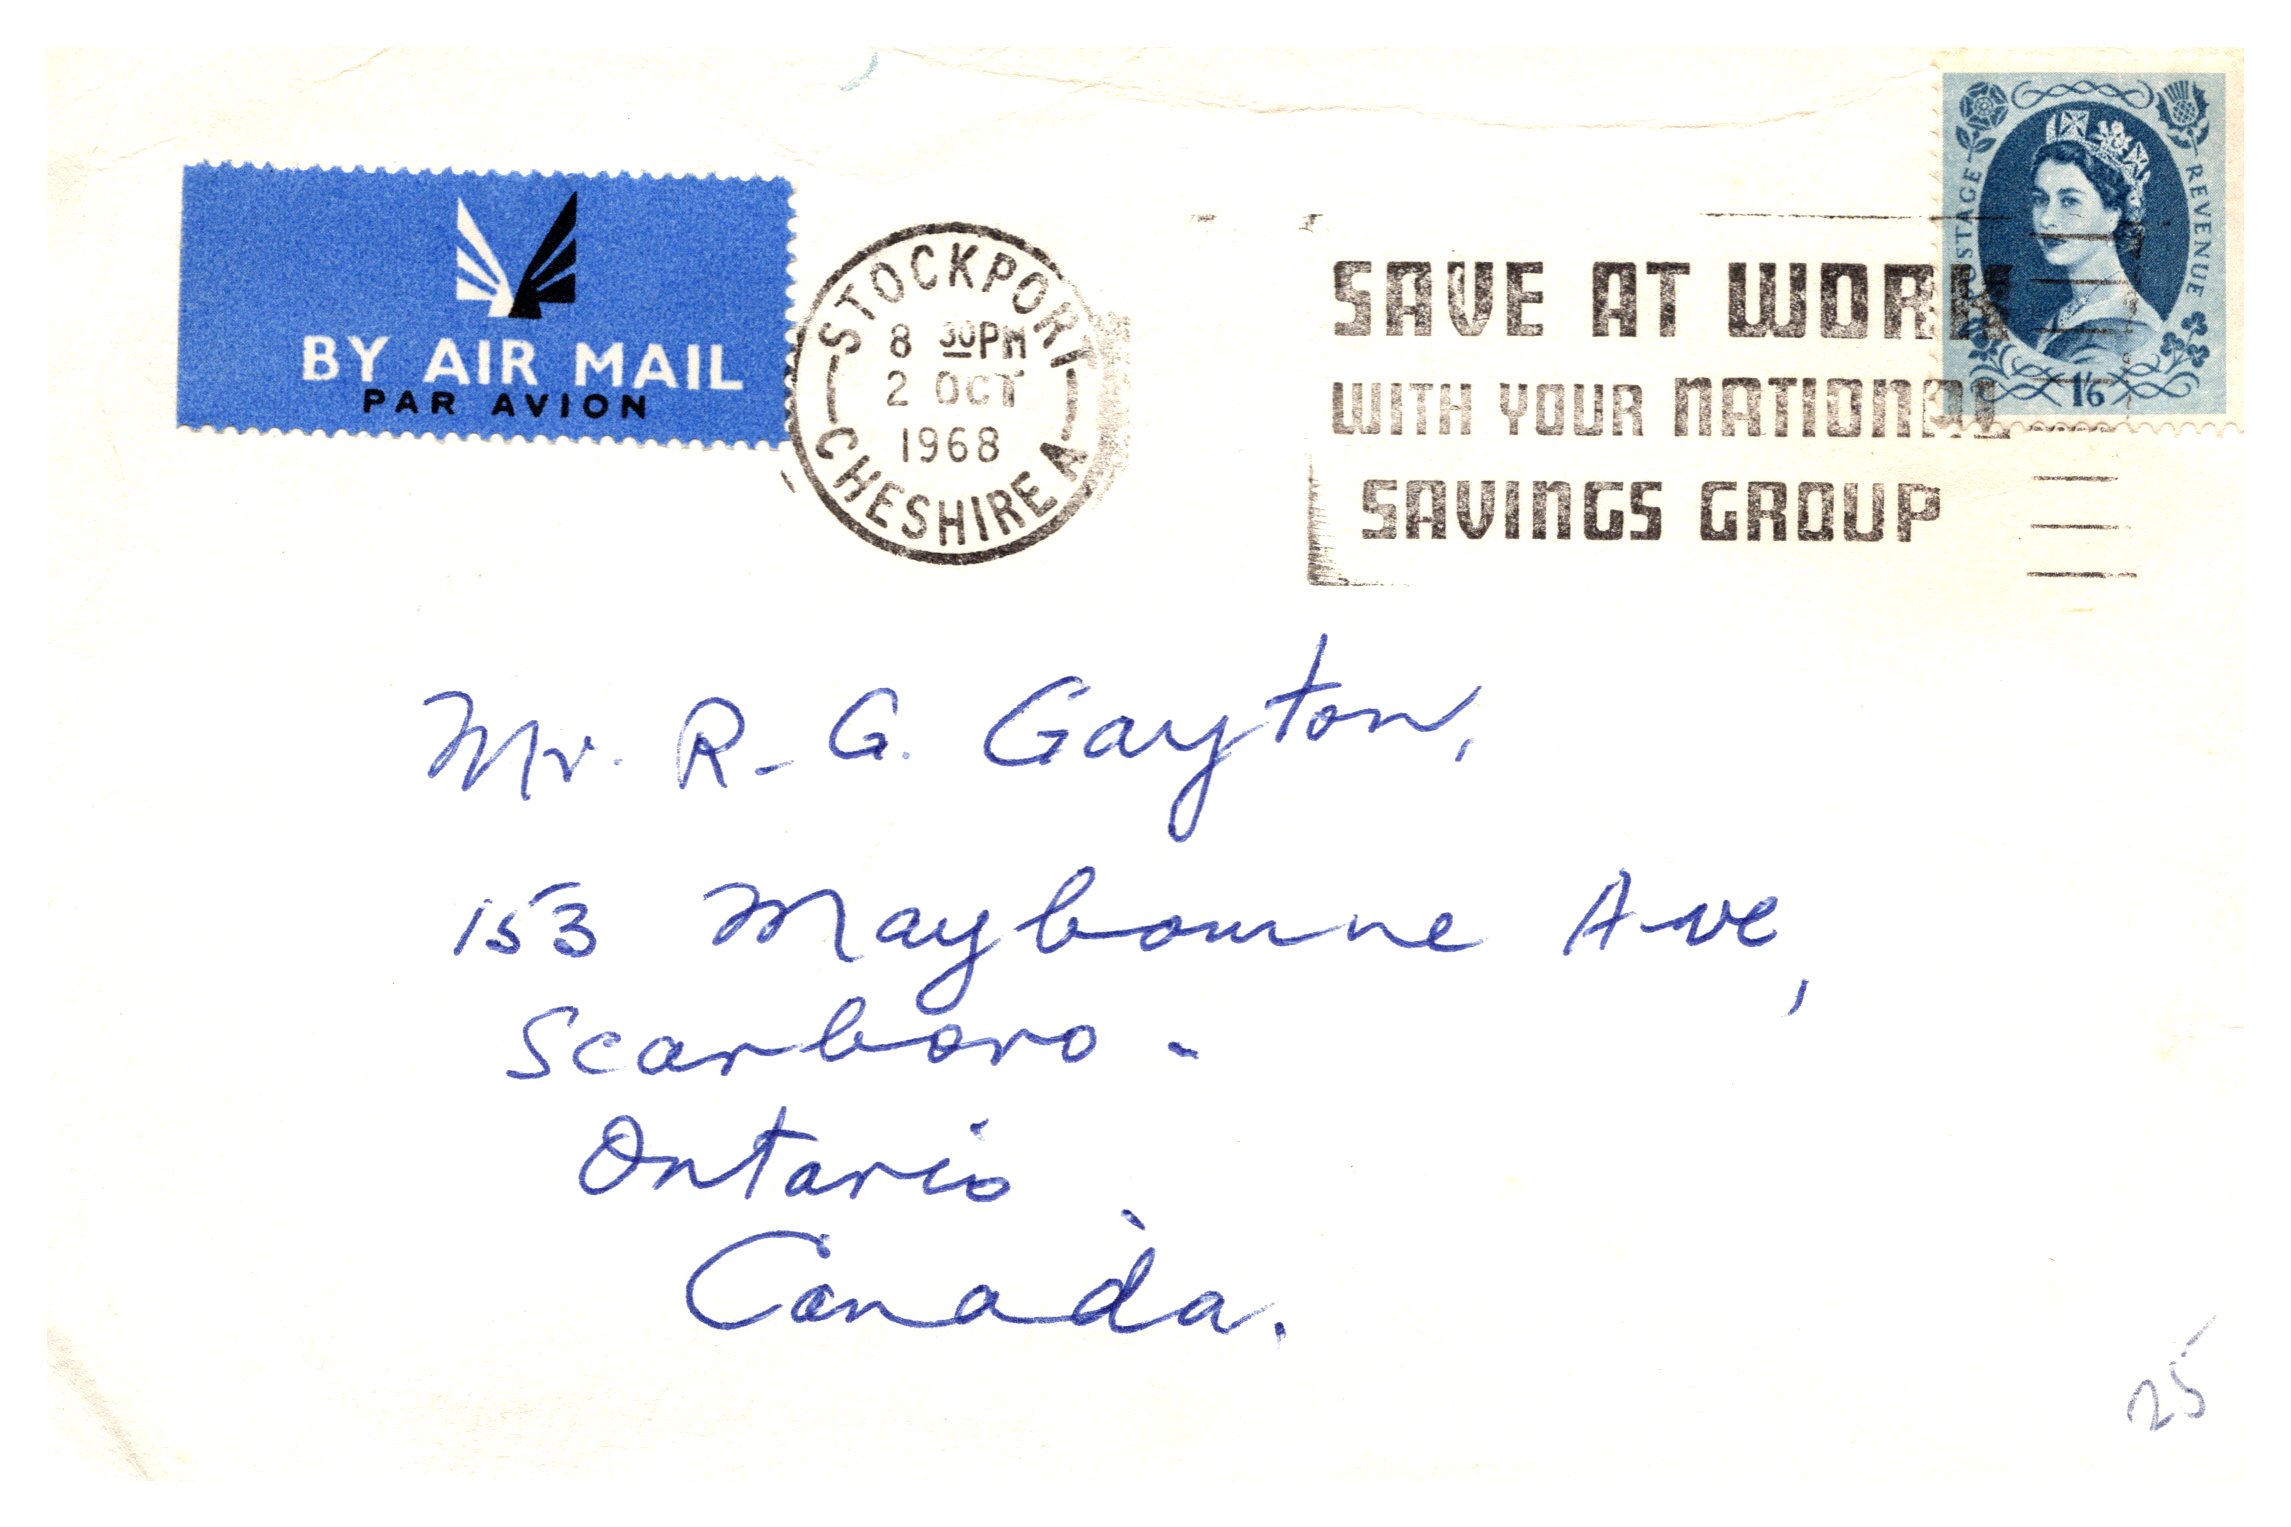 BY AIR MAIL
PAR AVION
STOCKPORT
8 30PM
2 OCT
1968
CHESHIRE A
SAVE AT WORK
WITH YOUR NATIONAL
SAVINGS GROUP
POSTAGE
REVENUE
1/6
Mr. R. G. Gayton,
153 Maybourne Ave,
Scarboro.
Ontario
Canada.
25